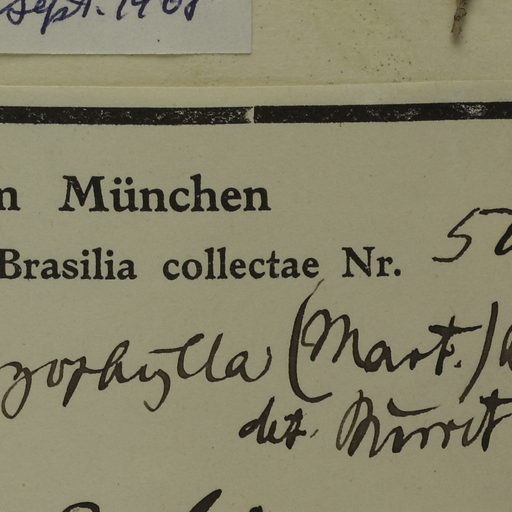 Sept. 1968
n München
Brasilia collectae Nr. 50
zophylla (Mart.)
det. Burret